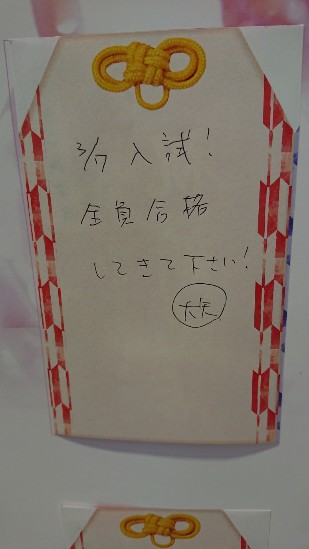 3/7 入試!
全員合格
してきて下さい!